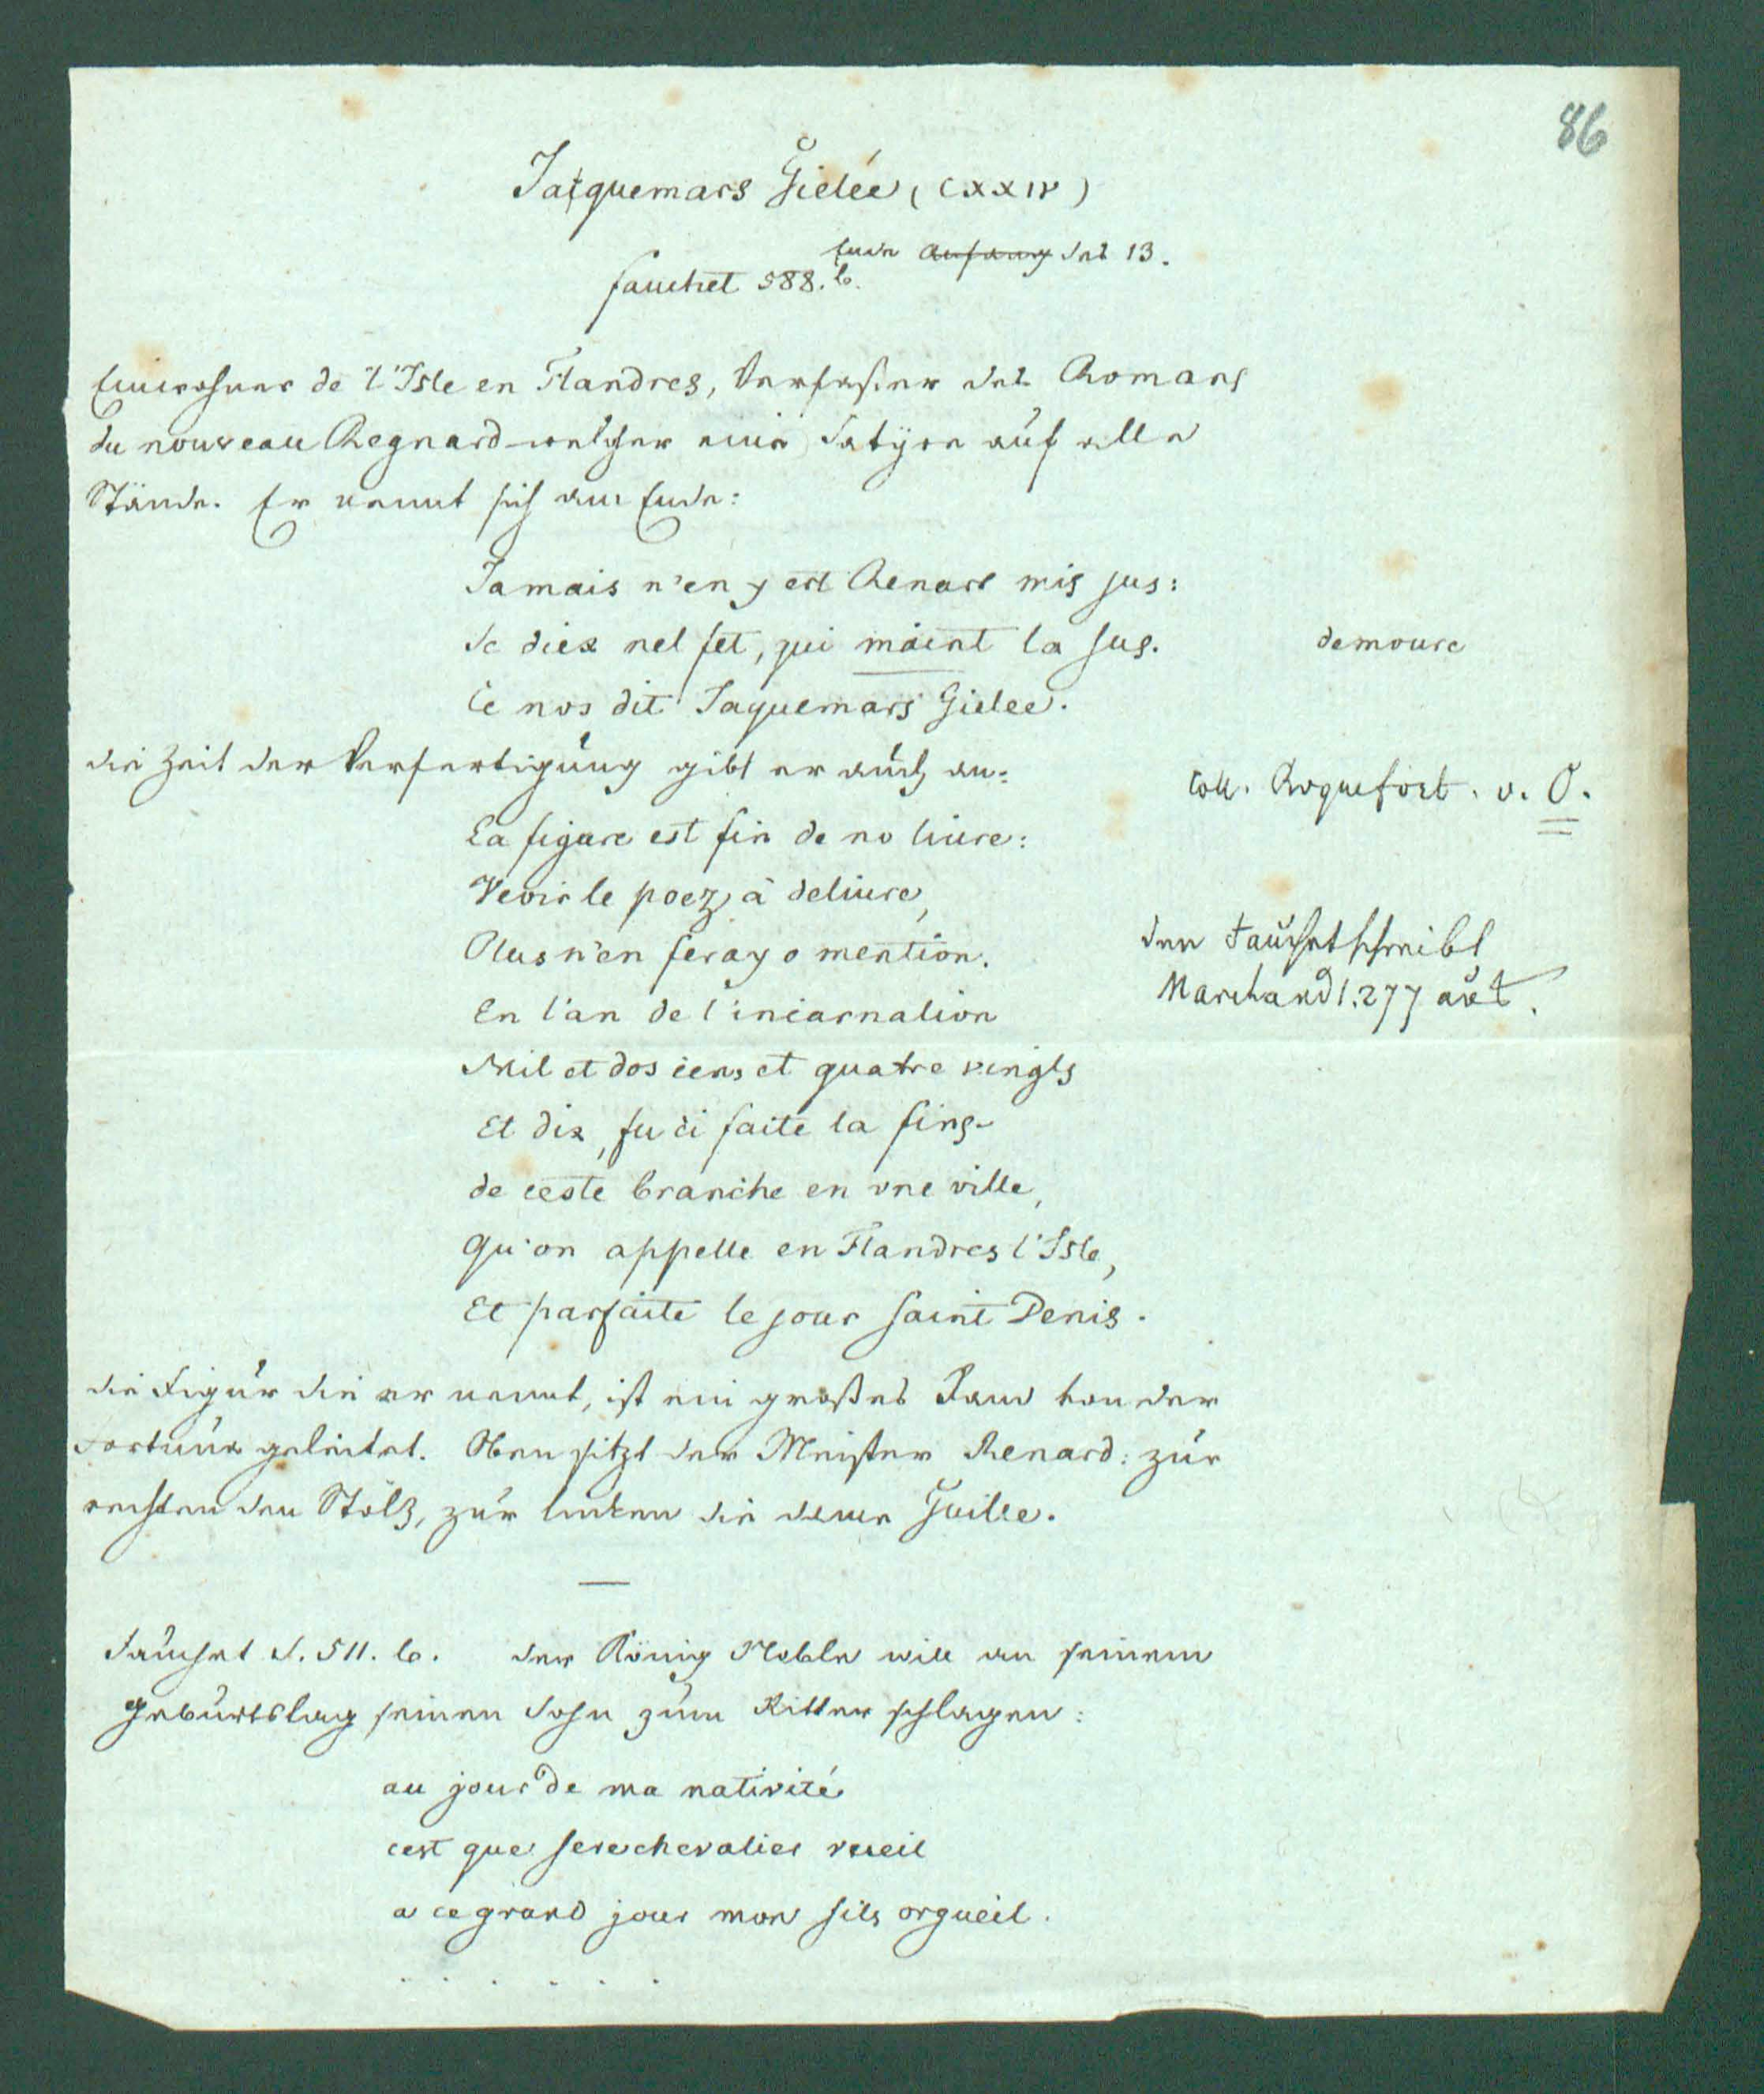 86
Jacquemars Gielée (CXXIV)
Ende Anfang des 13.
fauchet 588. b.
Einwohner de l'Isle en Flandres, Verfaßer des Romans
du nouveau Regnard welcher eine Satyre auf alle
Stände. Er nennt sich am Ende:
Jamais n'en y ert Renart mis jus:
Se diex nel fet, qui maint la sus.
demoure
Ce nos dit Jaquemars Gielee.
die Zeit der Verfertigung gibt er auch an:
coll. Roquefort. v. O.
La figure est fin de no liure:
Veoir le poez à deliure,
Plus n'en feray o mention.
den Fauchet schreibt
Marchand 1.277 aus.
En l'an de l'incarnation
Mil et dos cens et quatre vingts
Et dix, fu ci faite la fins
de ceste branche en vne ville,
Qu'on appelle en Flandres l'Isle,
Et parfaite le jour saint Denis.
die Figur die er nennt, ist ein großes Rad von der
Fortuna geleitet. Oben sitzt der Meister Renard: zur
rechten den Stolz, zur linken die dame Guille.
Fauchet S. 511. b. der König Noble will an seinem
Geburtstag seinen Sohn zum Ritter schlagen:
au jour de ma nativité
cest que fere chevalier vueil
a ce grand jour mon fils orgueil.
. . . . . .